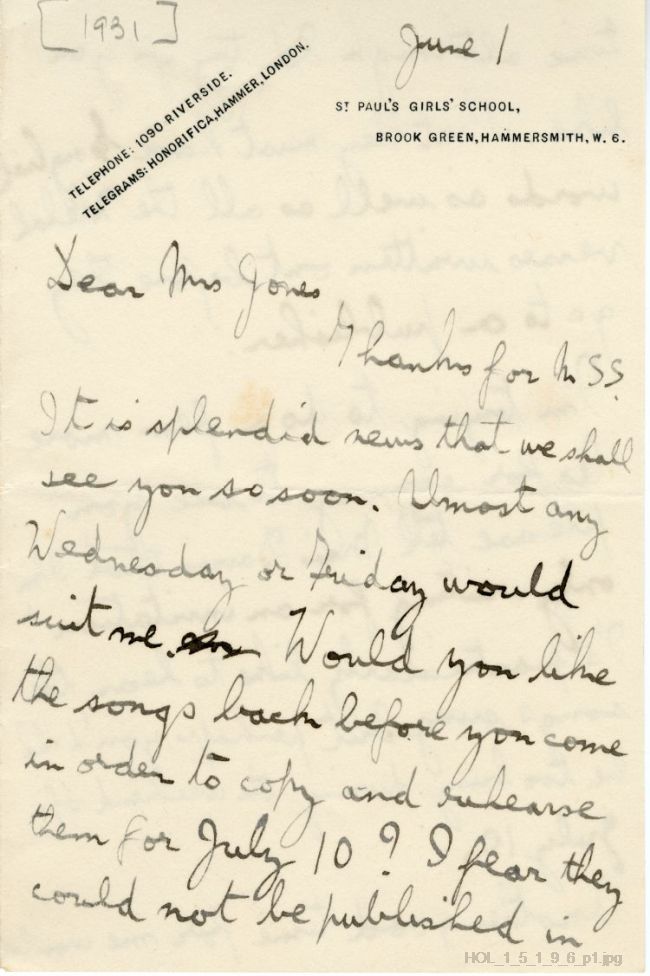 [1931]
June 1
TELEPHONE: 1090 RIVERSIDE.
TELEGRAMS: HONORIFICA, HAMMER, LONDON.
ST PAUL'S GIRLS' SCHOOL,
BROOK GREEN, HAMMERSMITH, W. 6.
Dear Mrs Jones
Thanks for MSS.
It is splendid news that we shall
see you so soon. Almost any
Wednesday or Friday would
suit me. Would you like
the songs back before you come
in order to copy and rehearse
them for July 10? I fear they
could not be published in
HOL_1_5_1_9_6_p1.jpg